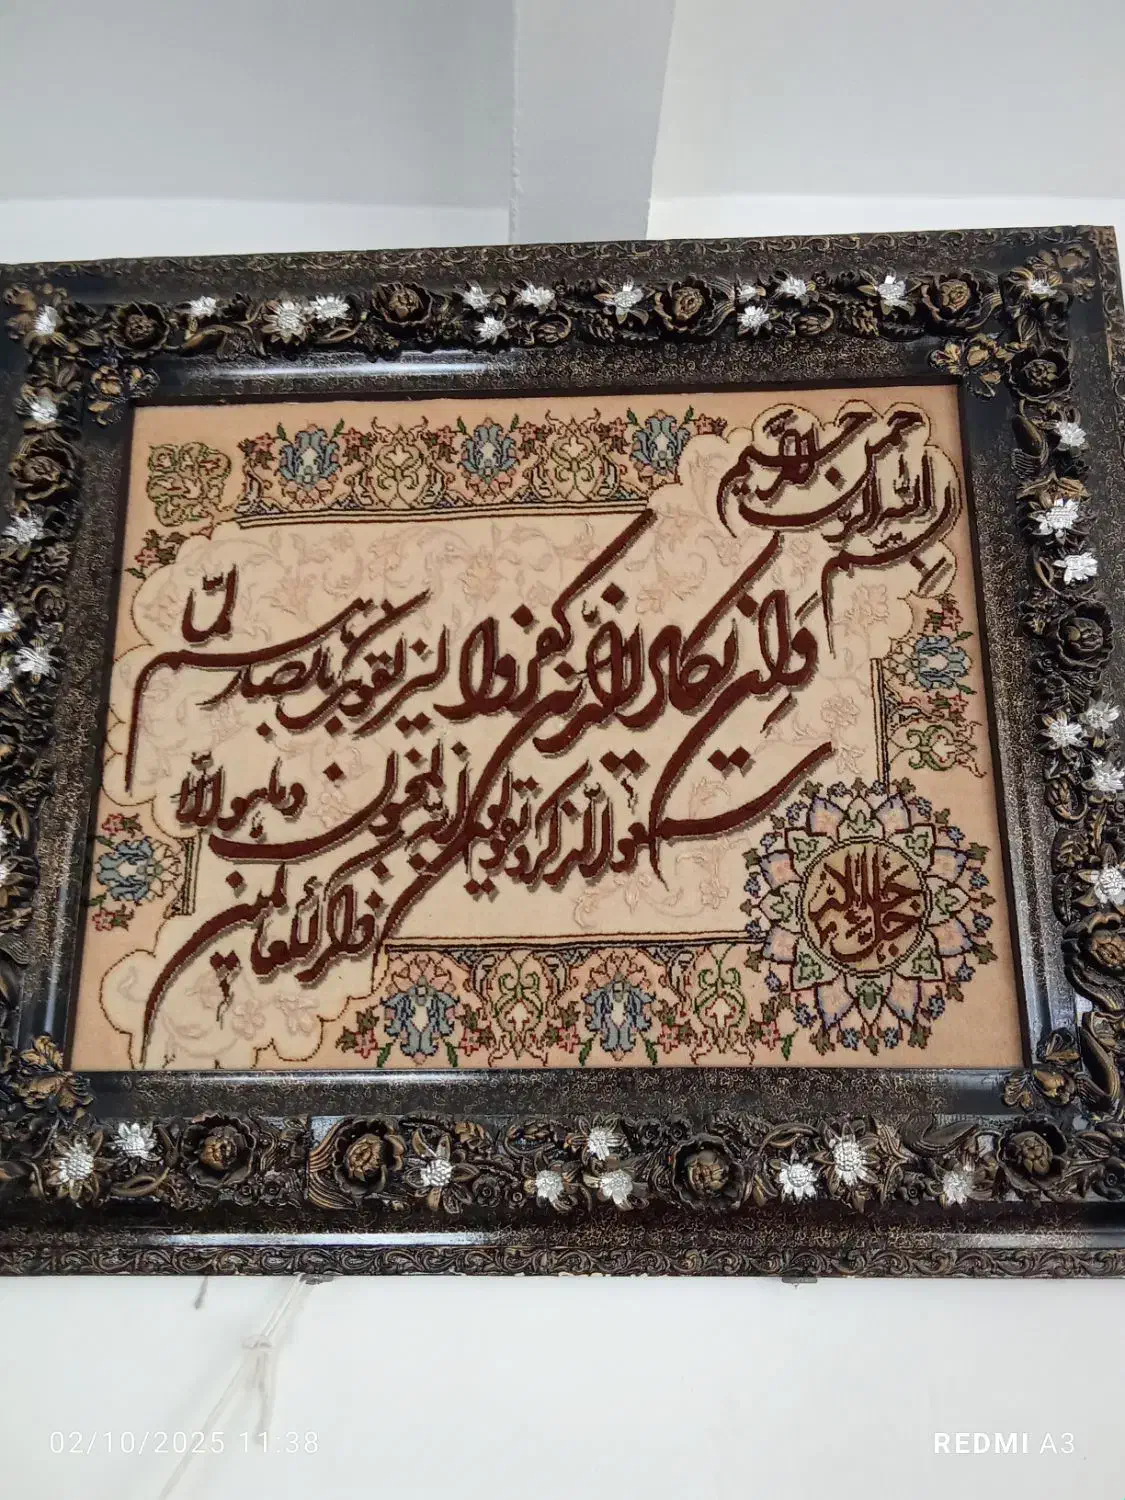 بسم الله الرحمن الرحیم
وَاِن یکاد الذین کفروا لیزلقونک بابصارهم لمّا
سمعوا الذکر و یقولون انه لمجنون و ما هو الّا
ذکرٌ للعالمین
جل جلاله
02/10/2025 11:38
REDMI A3